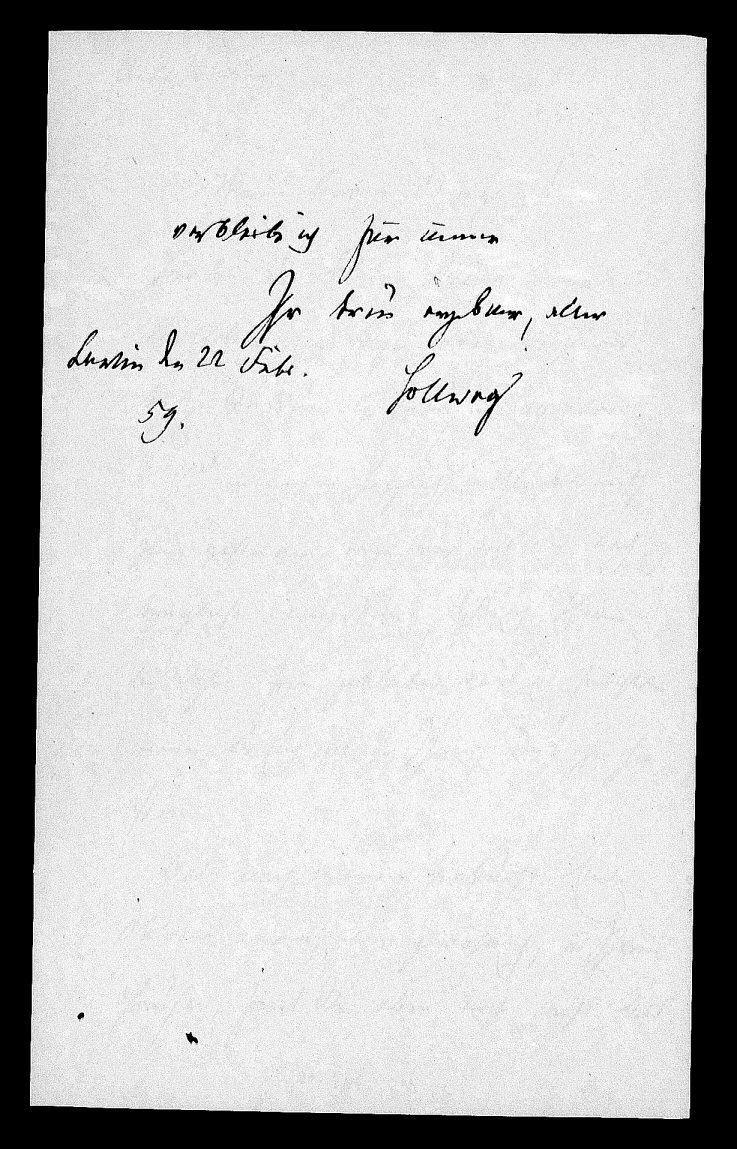 verbleibe ich für immer
Ihr treu ergebner, alter
Berlin den 22 Febr. Hollweg
59.